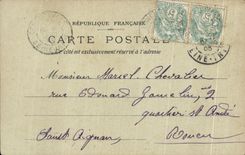 RÉPUBLIQUE FRANÇAISE
CARTE POSTALE
Ce côté est exclusivement réservé à l'adresse
Monsieur Marcel Chevalier
rue Edouard
quartier St André
Saint Aignan Rouen